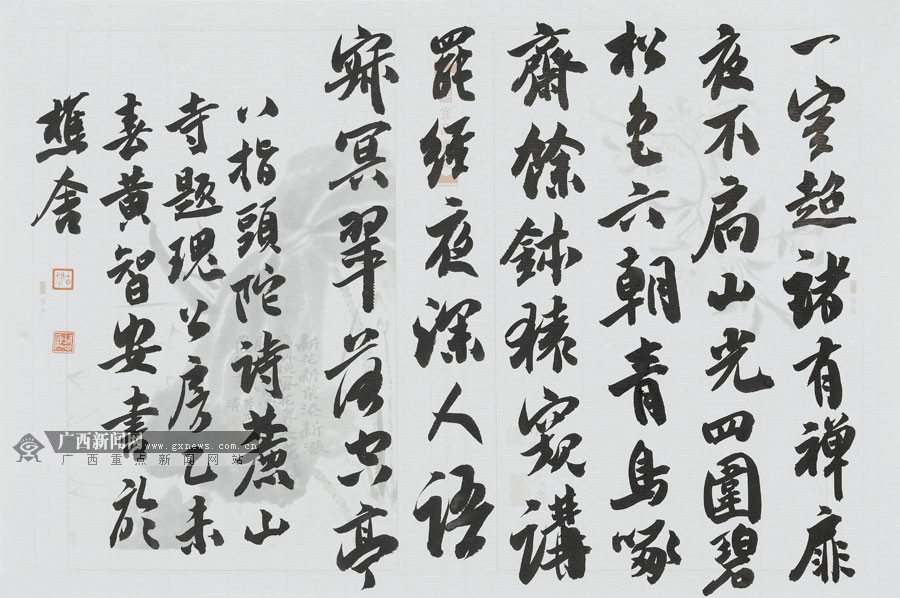 一室超諸有禪扉
夜不扃山光四圍碧
松色六朝青鳥啄
齋餘鉢猿窺講
罷經夜深人語
寂冥翠落空亭
八指頭陀詩麓山
寺題瑰公房己未
春黃智安書於
樵舍
广西新闻网 www.gxnews.com.cn
广西重点新闻网站